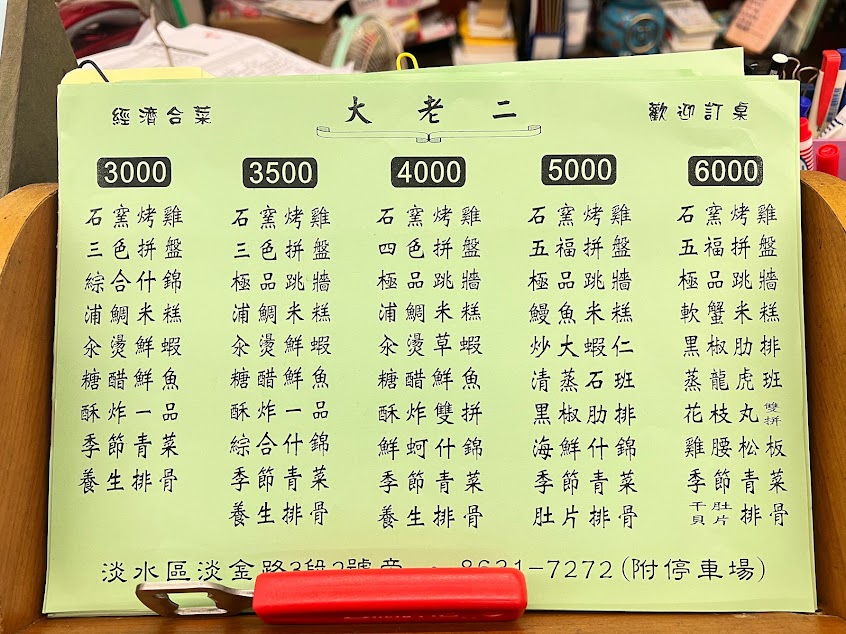 經濟合菜
大老二
歡迎訂桌
3000
石窯烤雞
三色拼盤
綜合什錦
浦鯛米糕
汆燙鮮蝦
糖醋鮮魚
酥炸一品
季節青菜
養生排骨
3500
石窯烤雞
三色拼盤
極品跳牆
浦鯛米糕
汆燙鮮蝦
糖醋鮮魚
酥炸一品
綜合什錦
季節青菜
養生排骨
4000
石窯烤雞
四色拼盤
極品跳牆
浦鯛米糕
汆燙草蝦
糖醋鮮魚
酥炸雙拼
鮮蚵什錦
季節青菜
養生排骨
5000
石窯烤雞
五福拼盤
極品跳牆
鰻魚米糕
炒大蝦仁
清蒸石班
黑椒肋排
海鮮什錦
季節青菜
肚片排骨
6000
石窯烤雞
五福拼盤
極品跳牆
軟蟹米糕
黑椒肋排
蒸龍虎班
花枝丸雙拼
雞腰松板
季節青菜
干貝肚片排骨
淡水區淡金路3段2號 8631-7272(附停車場)